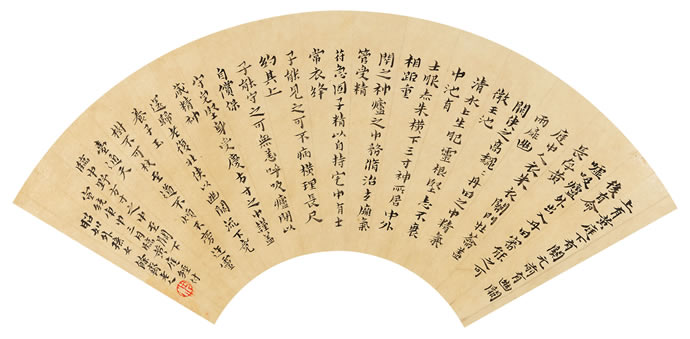 上有黃庭下有關元前有幽闕
後有命門
噓吸廬外出入丹田審能行之可
長存黃
庭中人衣朱衣關門壯籥蓋
兩扉
幽闕俠之高巍巍丹田之中精氣
微玉池
清水上生肥靈根堅志不衰
中池有
士服赤朱橫下三寸神所居中外
相距重
閉之神廬之中務脩治玄氣
管受精
苻急固子精以自持宅中有士
常衣絳
子能見之可不病橫理長尺
約其上
子能守之可無恙呼吸廬間以
自償保
守完堅身受慶方寸之中謹蓋
藏精神
還歸老復壯俠以幽闕流下竟
養子玉
樹不可杖至道不煩不旁迕靈
臺通天
臨中野方寸之中至關下